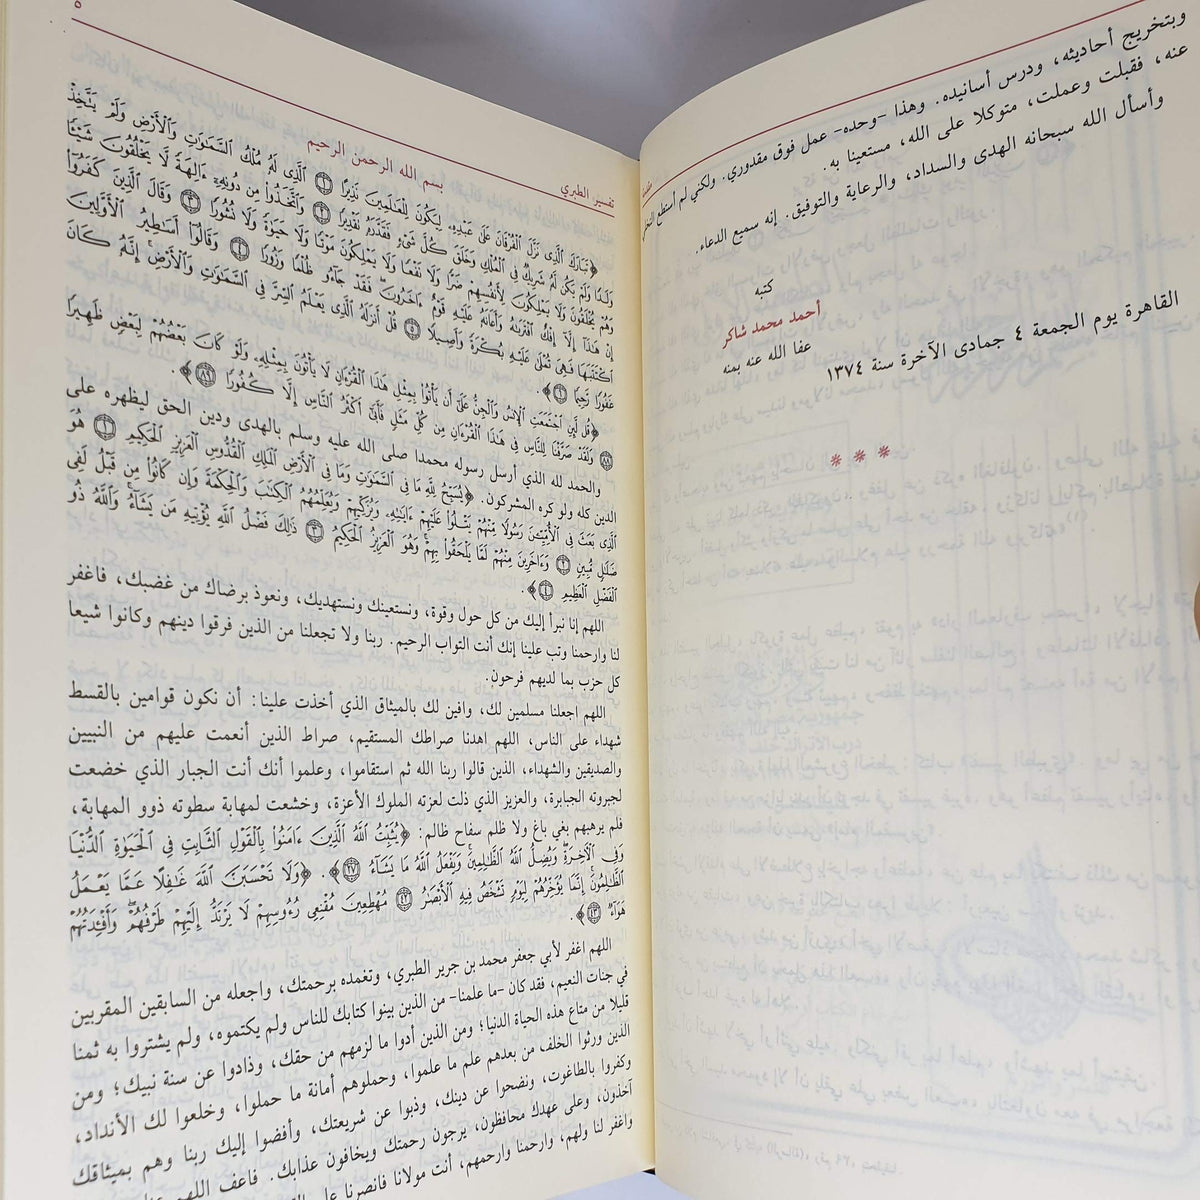 وبتخريج أحاديثه، ودرس أسانيده. وهذا -وحده- عمل فوق مقدوري. ولكني لم أستطع
عنه، فقبلت وعملت، متوكلا على الله، مستعينا به.
وأسأل الله سبحانه الهدى والسداد، والرعاية والتوفيق. إنه سميع الدعاء.
كتبه
أحمد محمد شاكر
عفا الله عنه بمنه
القاهرة يوم الجمعة ٤ جمادى الآخرة سنة ١٣٧٤
* * *
تفسير الطبري
٥
بسم الله الرحمن الرحيم
﴿تَبَارَكَ ٱلَّذِى نَزَّلَ ٱلْفُرْقَانَ عَلَىٰ عَبْدِهِۦ لِيَكُونَ لِلْعَـٰلَمِينَ نَذِيرًا ١ ٱلَّذِى لَهُۥ مُلْكُ ٱلسَّمَـٰوَٰتِ وَٱلْأَرْضِ وَلَمْ يَتَّخِذْ
وَلَدًا وَلَمْ يَكُن لَّهُۥ شَرِيكٌ فِى ٱلْمُلْكِ وَخَلَقَ كُلَّ شَىْءٍ فَقَدَّرَهُۥ تَقْدِيرًا ٢ وَٱتَّخَذُوا۟ مِن دُونِهِۦٓ ءَالِهَةً لَّا يَخْلُقُونَ شَيْـًٔا
وَهُمْ يُخْلَقُونَ وَلَا يَمْلِكُونَ لِأَنفُسِهِمْ ضَرًّا وَلَا نَفْعًا وَلَا يَمْلِكُونَ مَوْتًا وَلَا حَيَوٰةً وَلَا نُشُورًا ٣ وَقَالَ ٱلَّذِينَ كَفَرُوٓا۟
إِنْ هَـٰذَآ إِلَّآ إِفْكٌ ٱفْتَرَىٰهُ وَأَعَانَهُۥ عَلَيْهِ قَوْمٌ ءَاخَرُونَ ۖ فَقَدْ جَآءُو ظُلْمًا وَزُورًا ٤ وَقَالُوٓا۟ أَسَـٰطِيرُ ٱلْأَوَّلِينَ
ٱكْتَتَبَهَا فَهِىَ تُمْلَىٰ عَلَيْهِ بُكْرَةً وَأَصِيلًا ٥ قُلْ أَنزَلَهُ ٱلَّذِى يَعْلَمُ ٱلسِّرَّ فِى ٱلسَّمَـٰوَٰتِ وَٱلْأَرْضِ ۚ إِنَّهُۥ كَانَ
غَفُورًا رَّحِيمًا ٦﴾.
﴿قُل لَّئِنِ ٱجْتَمَعَتِ ٱلْإِنسُ وَٱلْجِنُّ عَلَىٰٓ أَن يَأْتُوا۟ بِمِثْلِ هَـٰذَا ٱلْقُرْءَانِ لَا يَأْتُونَ بِمِثْلِهِۦ وَلَوْ كَانَ بَعْضُهُمْ لِبَعْضٍ ظَهِيرًا
٨٨ وَلَقَدْ صَرَّفْنَا لِلنَّاسِ فِى هَـٰذَا ٱلْقُرْءَانِ مِن كُلِّ مَثَلٍ فَأَبَىٰٓ أَكْثَرُ ٱلنَّاسِ إِلَّا كُفُورًا ٨٩﴾.
والحمد لله الذي أرسل رسوله محمدا صلى الله عليه وسلم بالهدى ودين الحق ليظهره على
الدين كله ولو كره المشركون. ﴿يُسَبِّحُ لِلَّهِ مَا فِى ٱلسَّمَـٰوَٰتِ وَمَا فِى ٱلْأَرْضِ ٱلْمَلِكِ ٱلْقُدُّوسِ ٱلْعَزِيزِ ٱلْحَكِيمِ ١ هُوَ
ٱلَّذِى بَعَثَ فِى ٱلْأُمِّيِّـۧنَ رَسُولًا مِّنْهُمْ يَتْلُوا۟ عَلَيْهِمْ ءَايَـٰتِهِۦ وَيُزَكِّيهِمْ وَيُعَلِّمُهُمُ ٱلْكِتَـٰبَ وَٱلْحِكْمَةَ وَإِن كَانُوا۟ مِن قَبْلُ لَفِى
ضَلَـٰلٍ مُّبِينٍ ٢ وَءَاخَرِينَ مِنْهُمْ لَمَّا يَلْحَقُوا۟ بِهِمْ ۚ وَهُوَ ٱلْعَزِيزُ ٱلْحَكِيمُ ٣ ذَٰلِكَ فَضْلُ ٱللَّهِ يُؤْتِيهِ مَن يَشَآءُ ۚ وَٱللَّهُ ذُو
ٱلْفَضْلِ ٱلْعَظِيمِ ٤﴾.
اللهم إنا نبرأ إليك من كل حول وقوة، ونستعينك ونستهديك، ونعوذ برضاك من غضبك، فاغفر
لنا وارحمنا وتب علينا إنك أنت التواب الرحيم. ربنا ولا تجعلنا من الذين فرقوا دينهم وكانوا شيعا
كل حزب بما لديهم فرحون.
اللهم اجعلنا مسلمين لك، وافين لك بالميثاق الذي أخذت علينا: أن نكون قوامين بالقسط
شهداء على الناس، اللهم اهدنا صراطك المستقيم، صراط الذين أنعمت عليهم من النبيين
والصديقين والشهداء، الذين قالوا ربنا الله ثم استقاموا، وعلموا أنك أنت الجبار الذي خضعت
لجبروته الجبابرة، والعزيز الذي ذلت لعزته الملوك الأعزة، وخشعت لمهابة سطوته ذوو المهابة،
فلم يرهبهم بغي باغ ولا ظلم سفاح ظالم: ﴿يُثَبِّتُ ٱللَّهُ ٱلَّذِينَ ءَامَنُوا۟ بِٱلْقَوْلِ ٱلثَّابِتِ فِى ٱلْحَيَوٰةِ ٱلدُّنْيَا
وَفِى ٱلْـَٔاخِرَةِ ۖ وَيُضِلُّ ٱللَّهُ ٱلظَّـٰلِمِينَ ۚ وَيَفْعَلُ ٱللَّهُ مَا يَشَآءُ ٢٧﴾. ﴿وَلَا تَحْسَبَنَّ ٱللَّهَ غَـٰفِلًا عَمَّا يَعْمَلُ
ٱلظَّـٰلِمُونَ ۚ إِنَّمَا يُؤَخِّرُهُمْ لِيَوْمٍ تَشْخَصُ فِيهِ ٱلْأَبْصَـٰرُ ٤٢ مُهْطِعِينَ مُقْنِعِى رُءُوسِهِمْ لَا يَرْتَدُّ إِلَيْهِمْ طَرْفُهُمْ ۖ وَأَفْـِٔدَتُهُمْ
هَوَآءٌ ٤٣﴾.
اللهم اغفر لأبي جعفر محمد بن جرير الطبري، وتغمده برحمتك، واجعله من السابقين المقربين
في جنات النعيم، فقد كان -ما علمنا- من الذين بينوا كتابك للناس ولم يكتموه، ولم يشتروا به ثمنا
قليلا من متاع هذه الحياة الدنيا؛ ومن الذين أدوا ما لزمهم من حقك، وذادوا عن سنة نبيك؛ ومن
الذين ورثوا الخلف من بعدهم علم ما علموا، وحملوهم أمانة ما حملوا، وخلعوا لك الأنداد،
وكفروا بالطاغوت، ونضحوا عن دينك، وذبوا عن شريعتك، وأفضوا إليك ربنا وهم بميثاقك
آخذون، وعلى عهدك محافظون، يرجون رحمتك ويخافون عذابك. فاعف اللهم
واغفر لنا ولهم، وارحمنا وارحمهم، أنت مولانا فانصرنا